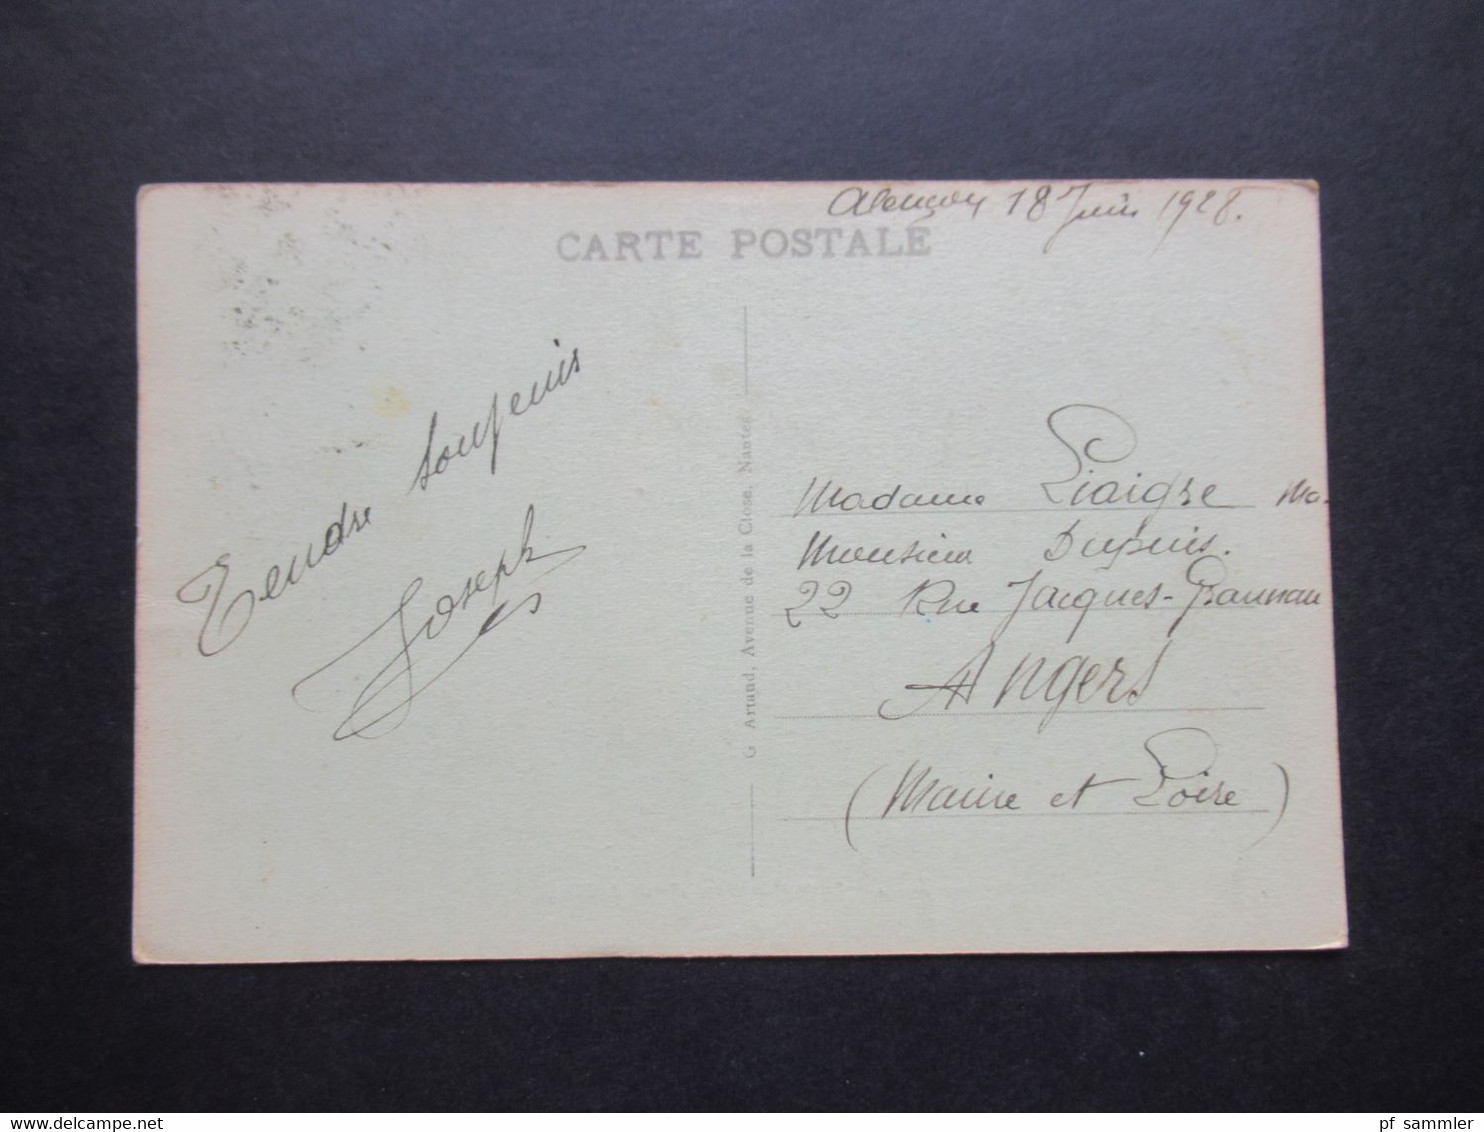 Alençon 18 Juin 1928.
CARTE POSTALE
Tendre souvenir
Joseph
G Artaud, Avenue de la Close, Nantes
Madame Liaigre
Monsieur Dupuis.
22 Rue Jacques-Granneau
Angers
(Maine et Loire)
pf sammler
www.delcampe.net